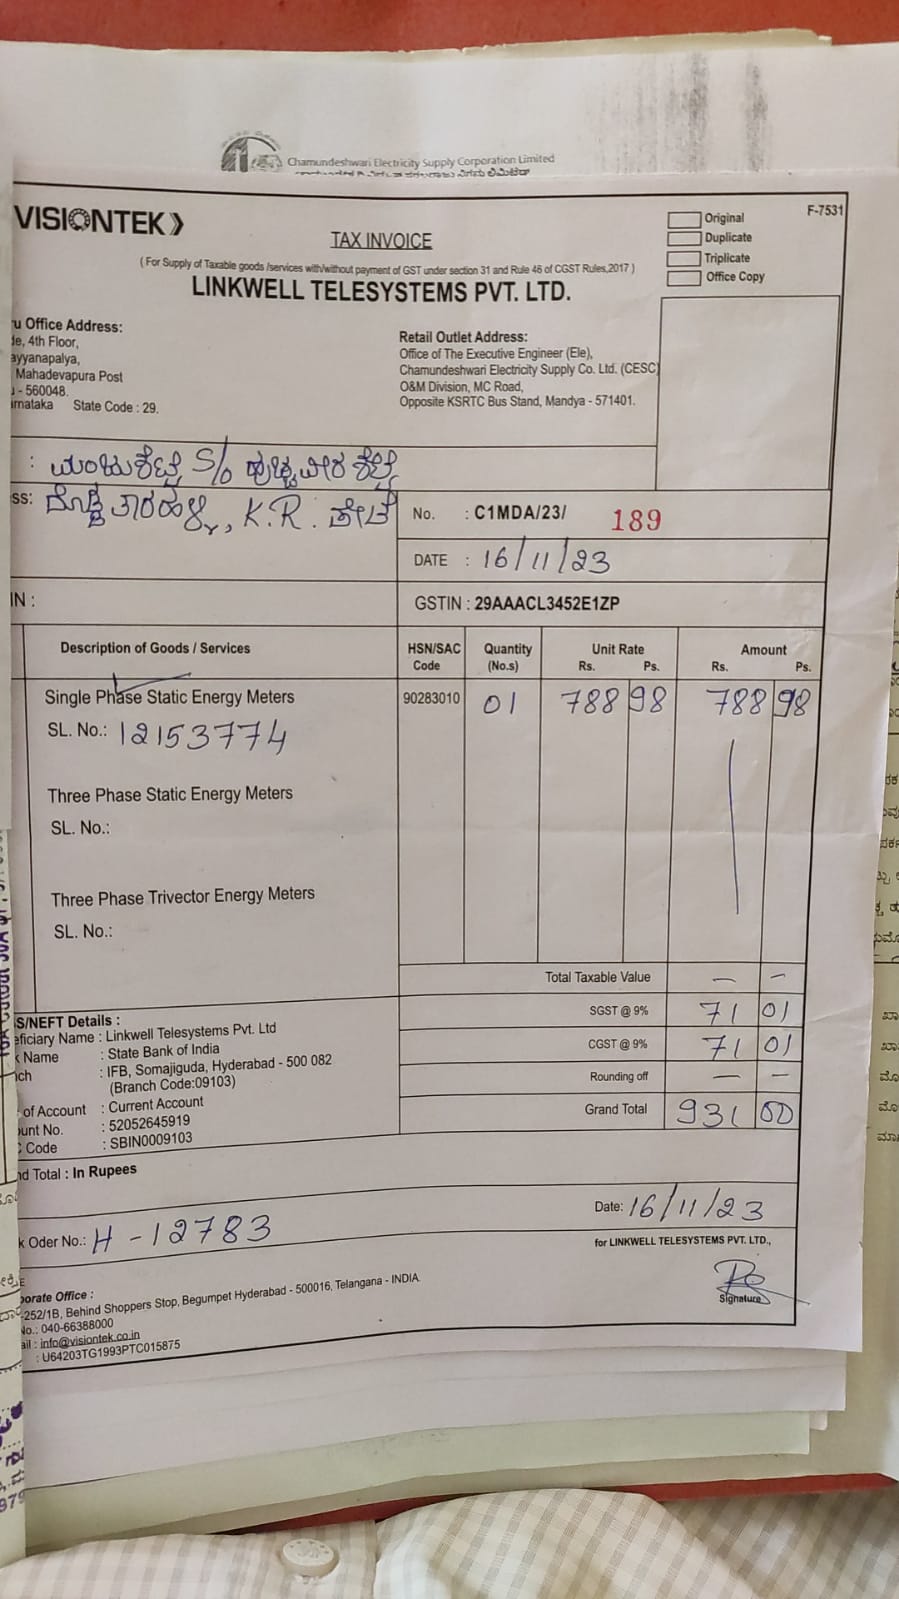 Chamundeshwari Electricity Supply Corporation Limited
VISIONTEK
F-7531
TAX INVOICE
Original
Duplicate
Triplicate
Office Copy
( For Supply of Taxable goods /services with/without payment of GST under section 31 and Rule 46 of CGST Rules,2017 )
LINKWELL TELESYSTEMS PVT. LTD.
u Office Address:
le, 4th Floor,
ayyanapalya,
Mahadevapura Post
- 560048.
rnataka State Code : 29.
Retail Outlet Address:
Office of The Executive Engineer (Ele),
Chamundeshwari Electricity Supply Co. Ltd. (CESC)
O&M Division, MC Road,
Opposite KSRTC Bus Stand, Mandya - 571401.
: S/o
ss: K.R. ಪೇಟೆ
No. : C1MDA/23/ 189
DATE : 16/11/23
IN :
GSTIN : 29AAACL3452E1ZP
Description of Goods / Services HSN/SAC Code Quantity (No.s) Unit Rate Rs. Ps. Amount Rs. Ps.
Single Phase Static Energy Meters 90283010 01 788 98 788 98
SL. No.: 12153774
Three Phase Static Energy Meters
SL. No.:
Three Phase Trivector Energy Meters
SL. No.:
Total Taxable Value — —
SGST @ 9% 71 01
CGST @ 9% 71 01
Rounding off — —
Grand Total 931 00
S/NEFT Details :
eficiary Name : Linkwell Telesystems Pvt. Ltd
k Name : State Bank of India
nch : IFB, Somajiguda, Hyderabad - 500 082
(Branch Code:09103)
of Account : Current Account
unt No. : 52052645919
C Code : SBIN0009103
nd Total : In Rupees
k Oder No.: H - 12783
Date: 16/11/23
for LINKWELL TELESYSTEMS PVT. LTD.,
Signature
porate Office :
-252/1B, Behind Shoppers Stop, Begumpet Hyderabad - 500016, Telangana - INDIA.
No.: 040-66388000
ail : info@visiontek.co.in
: U64203TG1993PTC015875